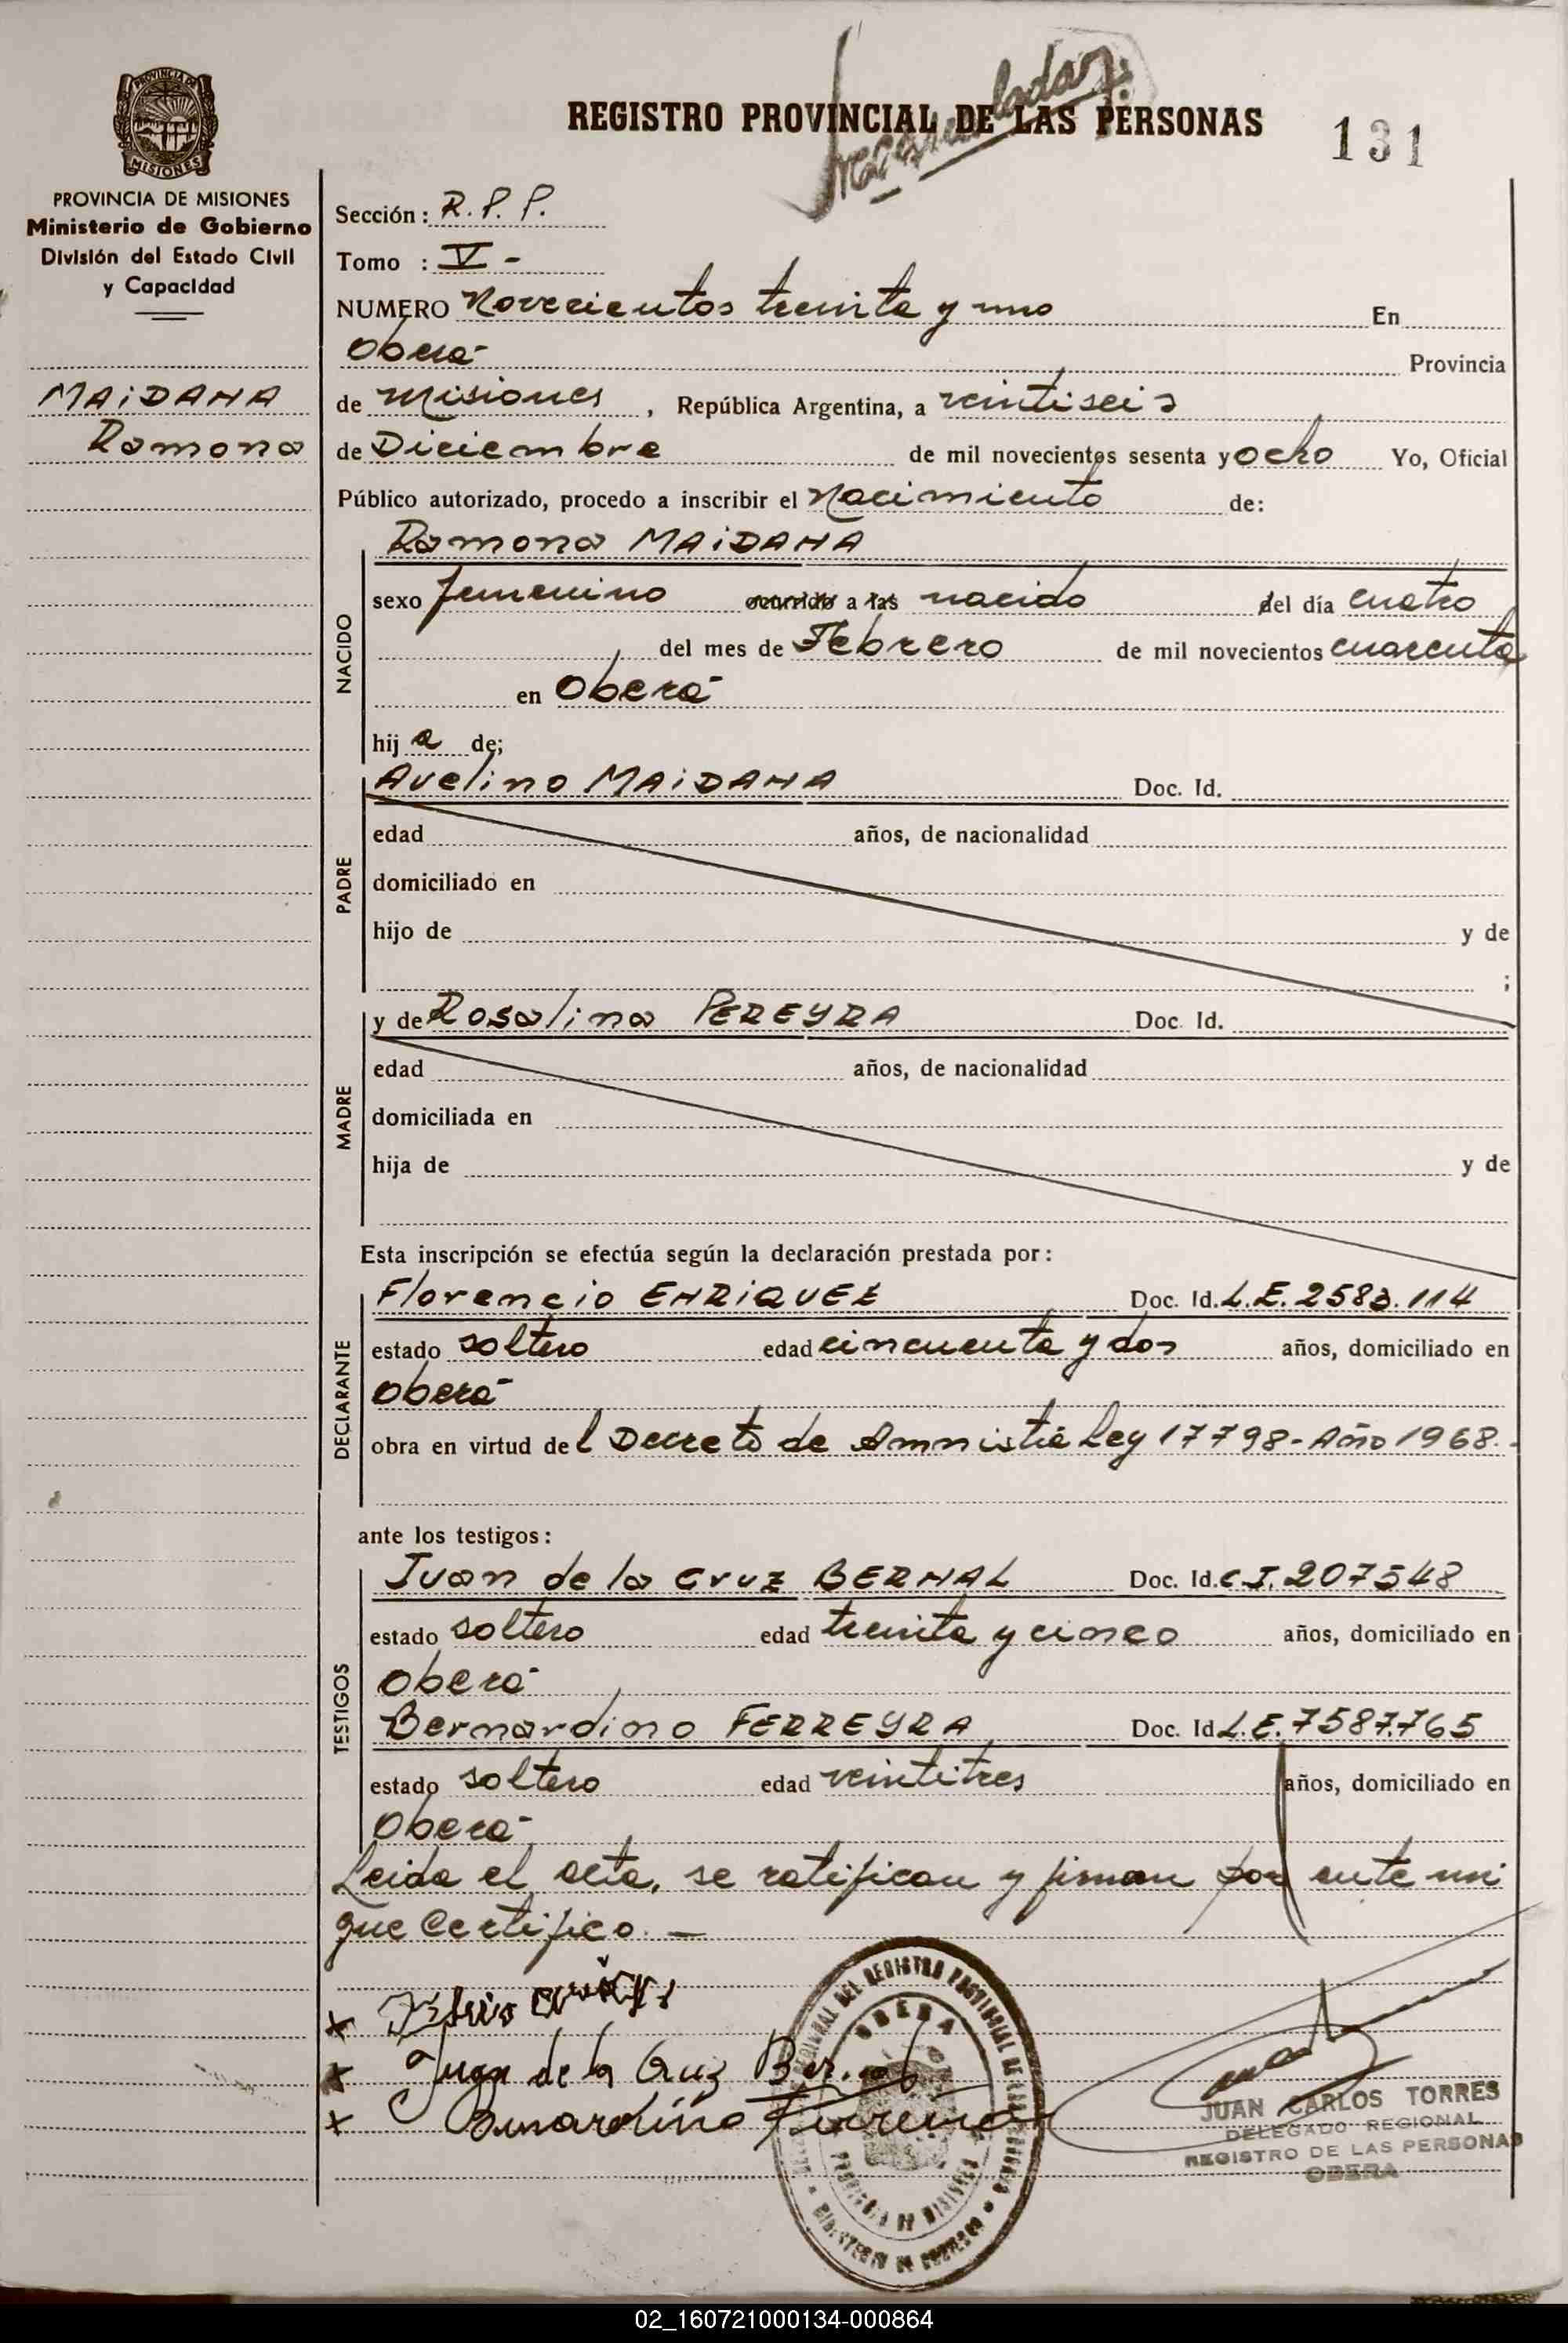 REGISTRO PROVINCIAL DE LAS PERSONAS
131
PROVINCIA DE
MISIONES
PROVINCIA DE MISIONES
Ministerio de Gobierno
División del Estado Civil
y Capacidad
MAiDANA
Ramona
Sección: R. P. P.
Tomo : V -
NUMERO Novecientos treinta y uno En
Oberá Provincia
de Misiones, República Argentina, a veintiseis
de Diciembre de mil novecientos sesenta y ocho Yo, Oficial
Público autorizado, procedo a inscribir el Nacimiento de:
NACIDO
Ramona MAiDANA
sexo femenino ocurrido a las nacido del día cuatro
del mes de Febrero de mil novecientos cuarenta
en Oberá
hij a de;
PADRE
Avelino MAiDANA Doc. Id.
edad años, de nacionalidad
domiciliado en
hijo de y de
;
MADRE
y de Rosalina PEREYRA Doc. Id.
edad años, de nacionalidad
domiciliada en
hija de y de
Esta inscripción se efectúa según la declaración prestada por:
DECLARANTE
Florencio ENRiQUEZ Doc. Id. L.E. 2583.114
estado soltero edad cincuenta y dos años, domiciliado en
Oberá
obra en virtud del Decreto de Amnistía Ley 17798 - Año 1968.
ante los testigos:
TESTIGOS
Juan de la Cruz BERNAL Doc. Id. C.I. 207548
estado soltero edad treinta y cinco años, domiciliado en
Oberá
Bernardino FERREYRA Doc. Id L.E. 7587.765
estado soltero edad veintitres años, domiciliado en
Oberá
Leida el acta, se ratifican y firman por ante mi
que Certifico. —
x
x Juan de la Cruz Bernal
x Bernardino Ferreira
OBERA
PROVINCIA DE MISIONES
MINISTERIO DE GOBIERNO
JUAN CARLOS TORRES
DELEGADO REGIONAL
REGISTRO DE LAS PERSONAS
OBERA
02_160721000134-000864